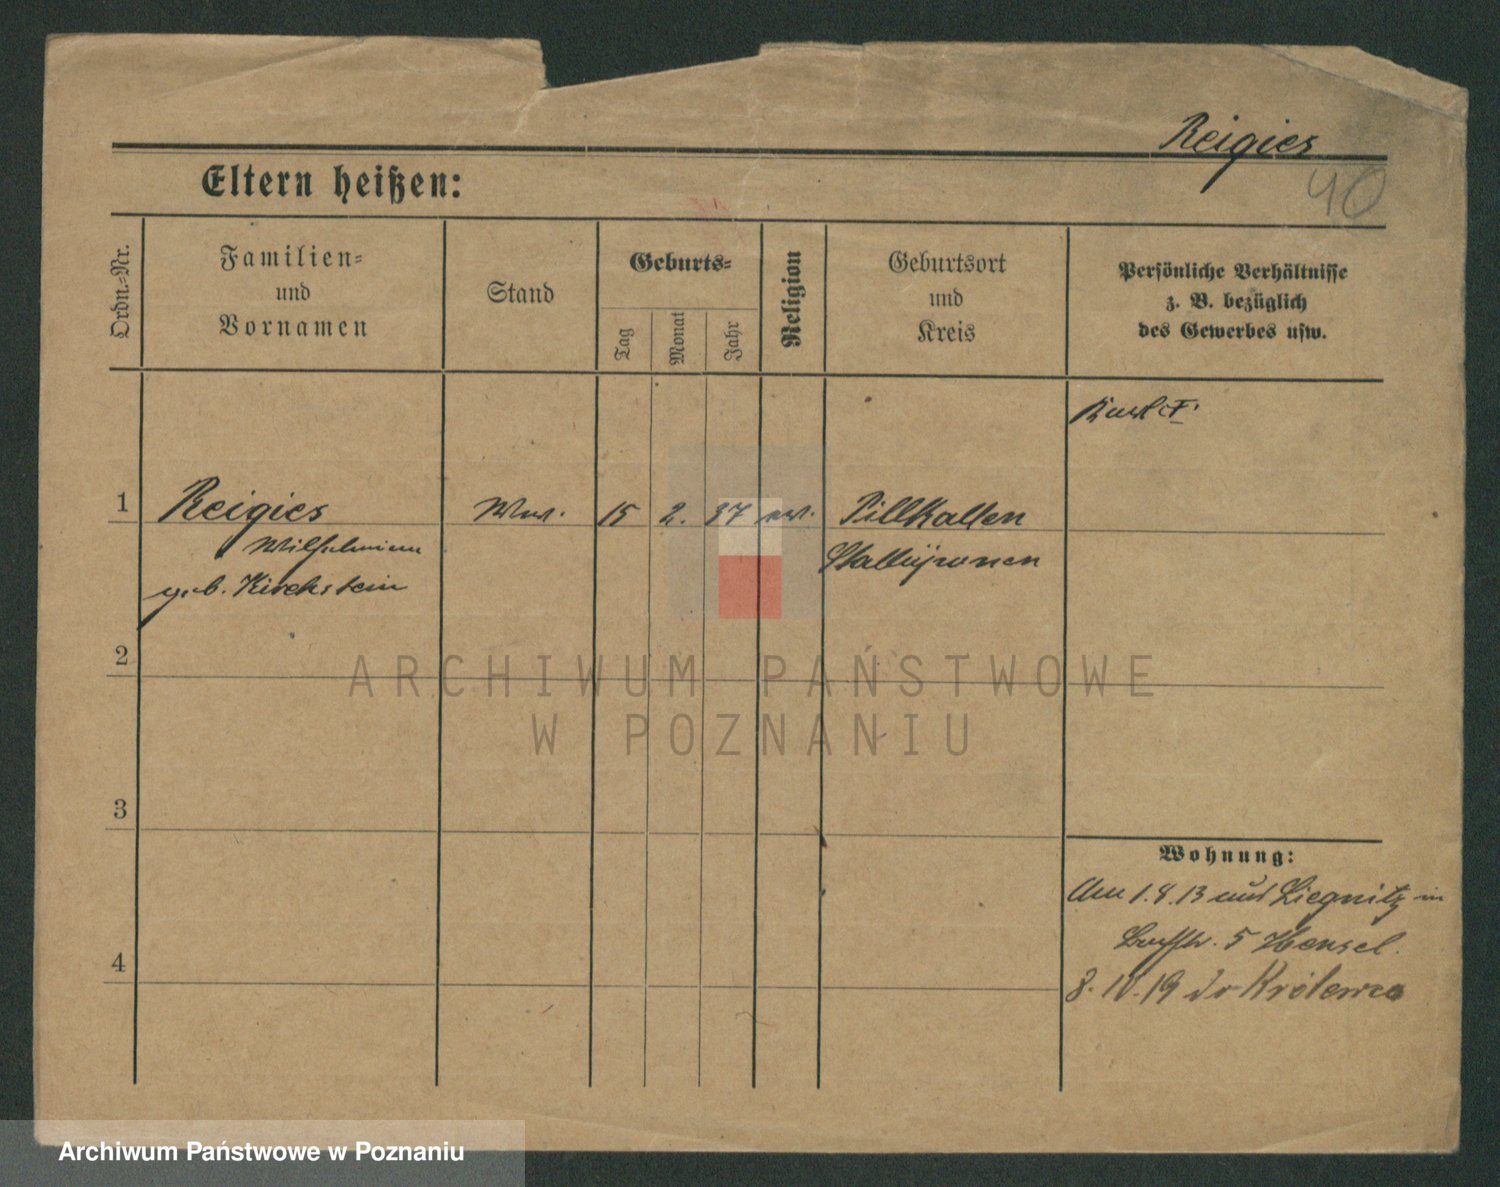 Reigies
40
Eltern heißen:
Ordn.-Nr.
Familien-
und
Vornamen
Stand
Geburts-
Tag
Monat
Jahr
Religion
Geburtsort
und
Kreis
Persönliche Verhältnisse
z. B. bezüglich
des Gewerbes usw.
1
Reigies
Ww.
15
2.
37
ev.
Pillkallen
Wilhelmine
Stallupönen
geb. Kirchstein
2
ARCHIWUM PAŃSTWOWE
W POZNANIU
3
Wohnung:
Am 1.8.13 aus Liegnitz in
5 Hensel.
4
8. IV. 19 do Królewca
Archiwum Państwowe w Poznaniu